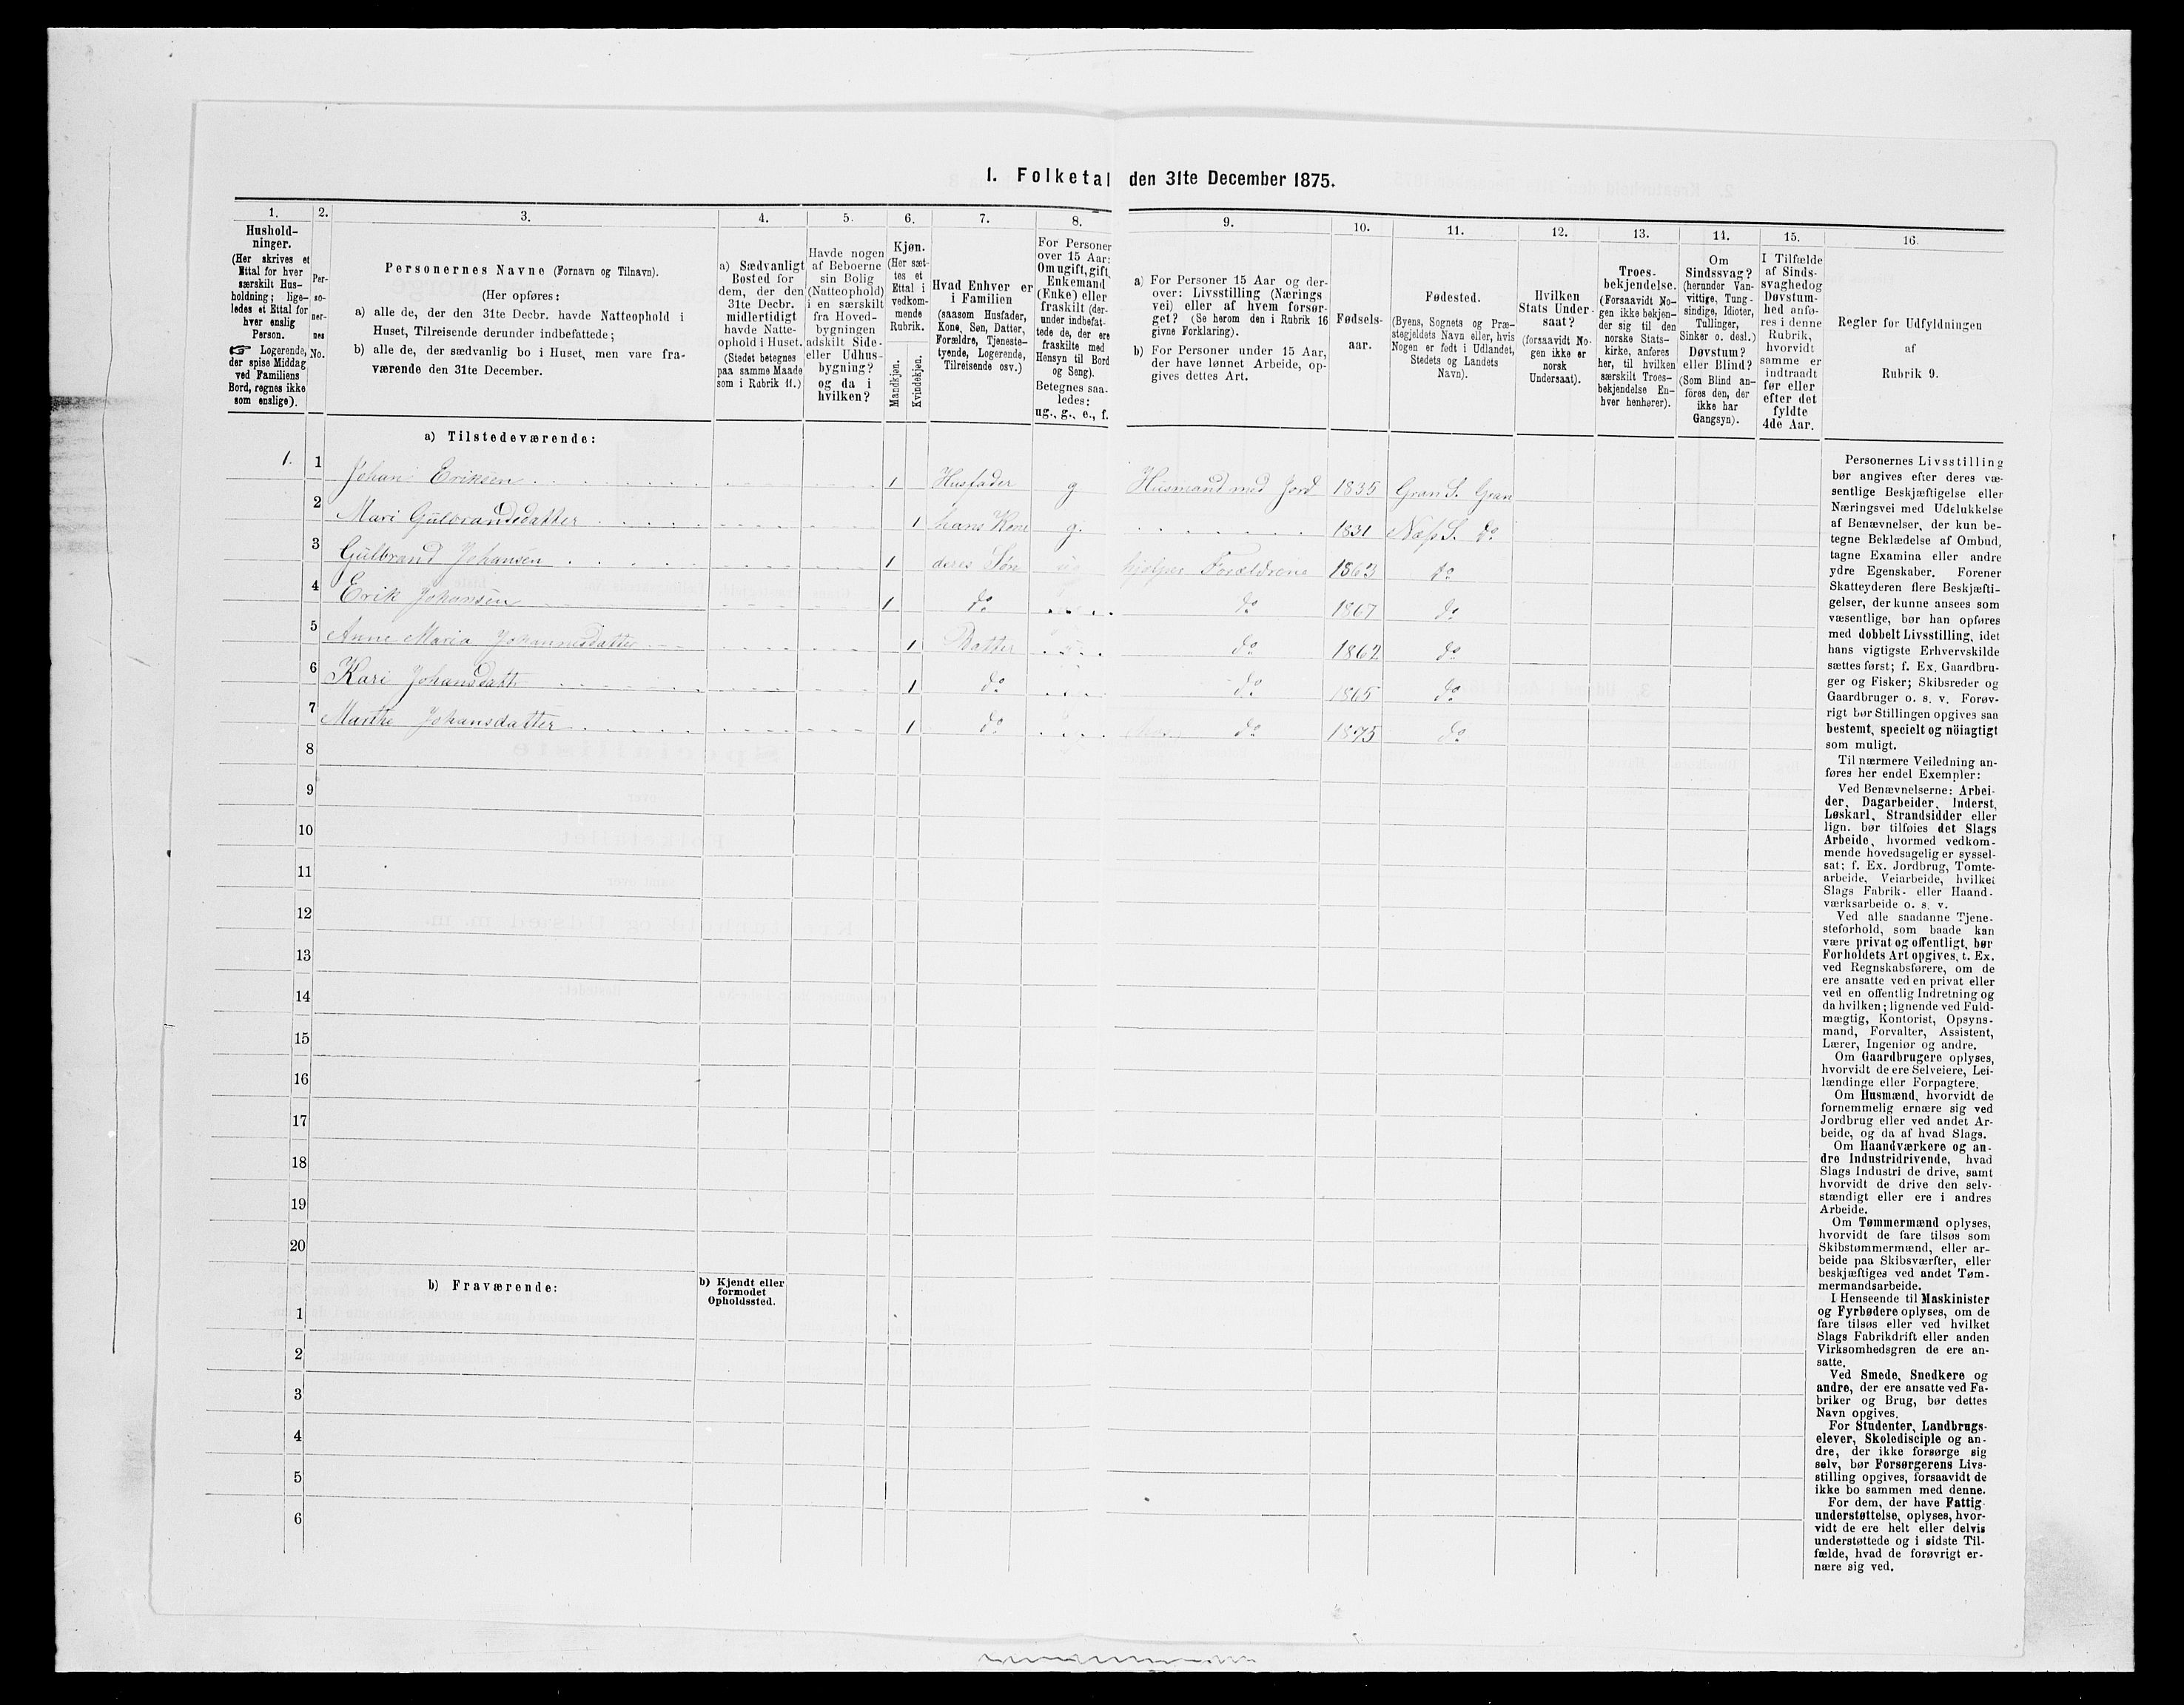 1. Folketal den 31te December 1875.
1.
Hushold-
ninger.
(Her skrives et
Ettal for hver
særskilt Hus-
holdning; lige-
ledes et Ettal for
hver enslig
Person.
☞ Logerende,
der spise Middag
ved Familiens
Bord, regnes ikke
som enslige).
2.
Per-
so-
ner-
nes
No.
3.
Personernes Navne (Fornavn og Tilnavn).
(Her opføres:
a) alle de, der den 31te Decbr. havde Natteophold i
Huset, Tilreisende derunder indbefattede;
b) alle de, der sædvanlig bo i Huset, men vare fra-
værende den 31te December.
4.
a) Sædvanligt
Bosted for
dem, der den
31te Decbr.
midlertidigt
havde Natte-
ophold i Huset.
(Stedet betegnes
paa samme Maade
som i Rubrik 11.)
5.
Havde nogen
af Beboerne
sin Bolig
(Natteophold)
i en særskilt
fra Hoved-
bygningen
adskilt Side-
eller Udhus-
bygning?
og da i
hvilken?
6.
Kjøn.
(Her sæt-
tes et
Ettal i
vedkom-
mende
Rubrik.
Mandkjøn.
Kvindekjøn.
7.
Hvad Enhver er
i Familien
(saasom Husfader,
Kone, Søn, Datter,
Forældre, Tjeneste-
tyende, Logerende,
Tilreisende osv.)
8.
For Personer
over 15 Aar:
Om ugift, gift,
Enkemand
(Enke) eller
fraskilt (der-
under indbefat-
tede de, der ere
fraskilte med
Hensyn til Bord
og Seng).
Betegnes saa-
ledes:
ug., g., e., f.
9.
a) For Personer 15 Aar og der-
over: Livsstilling (Nærings
vei) eller af hvem forsør-
get? (Se herom den i Rubrik 16
givne Forklaring).
b) For Personer under 15 Aar,
der have lønnet Arbeide, op-
gives dettes Art.
10.
Fødsels-
aar.
11.
Fødested.
(Byens, Sognets og Præ-
stegjeldets Navn eller, hvis
Nogen er født i Udlandet,
Stedets og Landets
Navn).
12.
Hvilken
Stats Under-
saat?
(forsaavidt No-
gen ikke er
norsk
Undersaat).
13.
Troes-
bekjendelse.
(Forsaavidt No-
gen ikke bekjen-
der sig til den
norske Stats-
kirke, anføres
her, til hvilken
særskilt Troes-
bekjendelse En-
hver henhører).
14.
Om
Sindssvag?
(herunder Van-
vittige, Tung-
sindige, Idioter,
Tullinger,
Sinker o. desl.)
Døvstum?
eller Blind?
(Som Blind an-
føres den, der
ikke har
Gangsyn).
15.
I Tilfælde
af Sinds-
svaghed og
Døvstum-
hed anfø-
res i denne
Rubrik,
hvorvidt
samme er
indtraadt
før eller
efter det
fyldte
4de Aar.
16.
Regler for Udfyldningen
af
Rubrik 9.
a) Tilstedeværende:
1. 1 Johan Eriksen 1 Husfader g Husmand med Jord 1835 Gran S. Gran
2 Mari Gulbrandsdatter 1 hans Kone g. 1831 Næs S. do
3 Gulbrand Johansen 1 deres Søn ug hjelper Forældrene 1863 do
4 Erik Johansen 1 do do 1867 do
5 Anne Maria Johannesdatter 1 Datter do 1862 do
6 Kari Johansdatt 1 do do 1865 do
7 Marthe Johansdatter 1 do do 1875 do
8
9
10
11
12
13
14
15
16
17
18
19
20
b) Fraværende:
b) Kjendt eller
formodet
Opholdssted.
1
2
3
4
5
6
Personernes Livsstilling
bør angives efter deres væ-
sentlige Beskjæftigelse eller
Næringsvei med Udelukkelse
af Benævnelser, der kun be-
tegne Beklædelse af Ombud,
tagne Examina eller andre
ydre Egenskaber. Forener
Skatteyderen flere Beskjæfti-
gelser, der kunne ansees som
væsentlige, bør han opføres
med dobbelt Livsstilling, idet
hans vigtigste Erhvervskilde
sættes først; f. Ex. Gaardbru-
ger og Fisker; Skibsreder og
Gaardbruger o. s. v. Forøv-
rigt bør Stillingen opgives saa
bestemt, specielt og nöiagtigt
som muligt.
Til nærmere Veiledning an-
føres her endel Exempler:
Ved Benævnelserne: Arbei-
der, Dagarbeider, Inderst,
Løskarl, Strandsidder eller
lign. bør tilføies det Slags
Arbeide, hvormed vedkom-
mende hovedsagelig er syssel-
sat; f. Ex. Jordbrug, Tomte-
arbeide, Veiarbeide, hvilket
Slags Fabrik- eller Haand-
værksarbeide o. s. v.
Ved alle saadanne Tjene-
steforhold, som baade kan
være privat og offentligt, bør
Forholdets Art opgives, t. Ex.
ved Regnskabsførere, om de
ere ansatte ved en privat eller
ved en offentlig Indretning og
da hvilken; lignende ved Fuld-
mægtig, Kontorist, Opsyns-
mand, Forvalter, Assistent,
Lærer, Ingeniør og andre.
Om Gaardbrugere oplyses,
hvorvidt de ere Selveiere, Lei-
lændinge eller Forpagtere.
Om Husmænd, hvorvidt de
fornemmelig ernære sig ved
Jordbrug eller ved andet Ar-
beide, og da af hvad Slags.
Om Haandværkere og an-
dre Industridrivende, hvad
Slags Industri de drive, samt
hvorvidt de drive den selv-
stændigt eller ere i andres
Arbeide.
Om Tømmermænd oplyses,
hvorvidt de fare tilsøs som
Skibstømmermænd, eller ar-
beide paa Skibsværfter, eller
beskjæftiges ved andet Tøm-
mermandsarbeide.
I Henseende til Maskinister
og Fyrbødere oplyses, om de
fare tilsøs eller ved hvilket
Slags Fabrikdrift eller anden
Virksomhedsgren de ere an-
satte.
Ved Smede, Snedkere og
andre, der ere ansatte ved Fa-
briker og Brug, bør dettes
Navn opgives.
For Studenter, Landbrugs-
elever, Skoledisciple og an-
dre, der ikke forsørge sig
selv, bør Forsørgerens Livs-
stilling opgives, forsaavidt de
ikke bo sammen med denne.
For dem, der have Fattig-
understøttelse, oplyses, hvor-
vidt de ere helt eller delvis
understøttede og i sidste Til-
fælde, hvad de forøvrigt er-
nære sig ved.